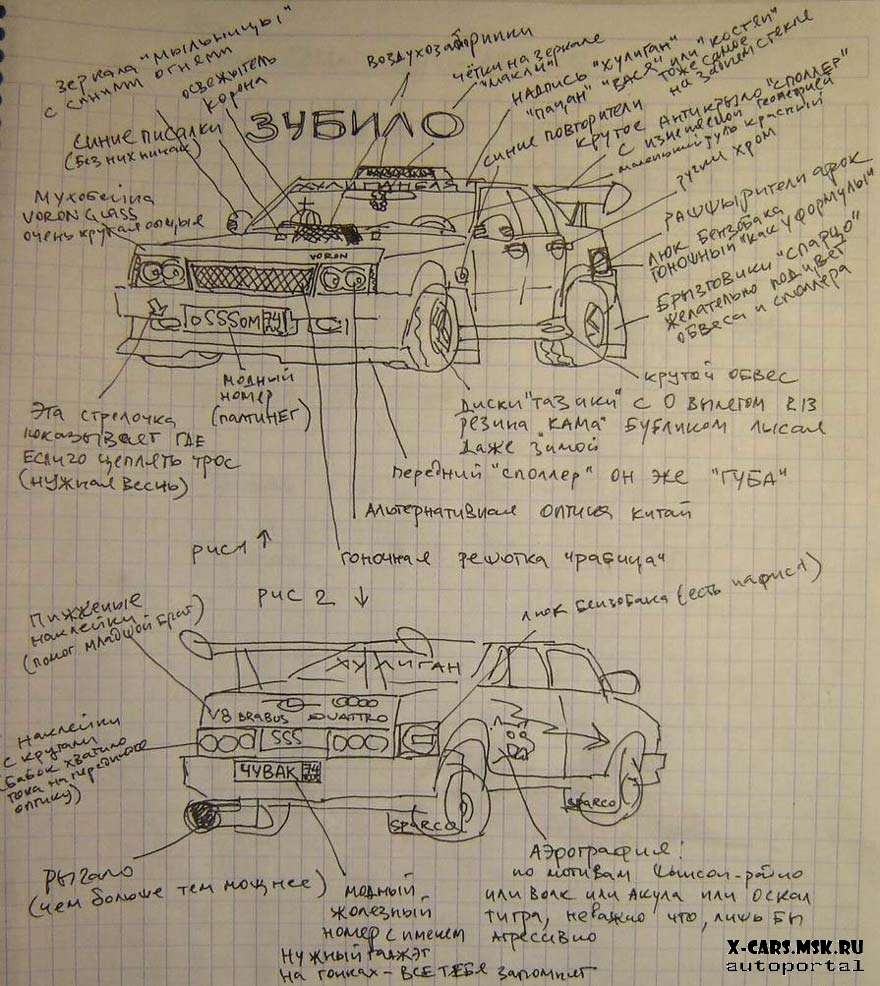 зеркала "мыльницы"
с синими огнями
освежитель
корона
воздухозаборники
чётки на зеркале
"макли"
надпись "хулиган"
"пацан" "Вася" или "костян"
тоже самое
на заднем стекле
синие писалки
(без них никак)
ЗУБИЛО
синие повторители
крутое антикрыло "споллер"
с изменяемой геометрией
маленький руль красный
ручки хром
Мухобойка
VORON GLASS
очень крутая
ХУЛИГАН
VORON
рашшырители арок
люк бензобака
гоночный "как у формулы"
Брызговики "спарцо"
желательно под цвет
обвеса и споллера
OSSSOM 74
модный
номер
крутой обвес
Эта стрелочка
показывает где
если чо цеплять трос
(нужная весчь)
Диски "тазики" с 0 вылетом R13
резина "Кама" бубликом лысая
даже зимой
передний "споллер" он же "губа"
Альтернативная оптика китай
рис 1 ↑
гоночная решотка "рабица"
рис 2 ↓
люк бензобака (есть на рис 1)
Пижженые
наклейки
(помог младшой брат)
ХУЛИГАН
V8 BRABUS QUATTRO
SSS
Наклейки
с кругами
бабок хватило
тока на переднюю
оптику)
ЧУВАК 74
sparco
sparco
рыгало
(чем больше тем мощнее)
модный
жолезный
номер с именем
нужный гаджэт
на гонках - все тебя запомнят
Аэрография:
по мотивам
или волк или акула или оскал
тигра, неважно что, лишь бы
агрессивно
X-CARS.MSK.RU
autoportal